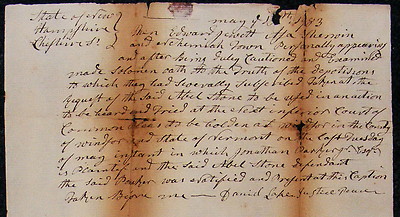 State of New
Hampshire
Cheshire Ss. may 10th 1783
then Edward Jewett Asa Sherwin
and Nehemiah Town Personally appearing
and after Being duly Cautioned and Examined
made Solomn oath to the truth of the depositions
to which they had Severally Subscribed Taken at the
Request of the said Abel Stone to be used in an action
to be heard and tried at the next inferior Court of
Common Pleas to be Holden at Windsor in the County
of windsor and State of Vermont on the Last Tuesday
of may Instant in which Jonathan Parker Esqr
is Plaintiff and the Said Abel Stone defendant
the Said Parker was Notified and Present at this Caption
Taken Before me — David Justice Peace